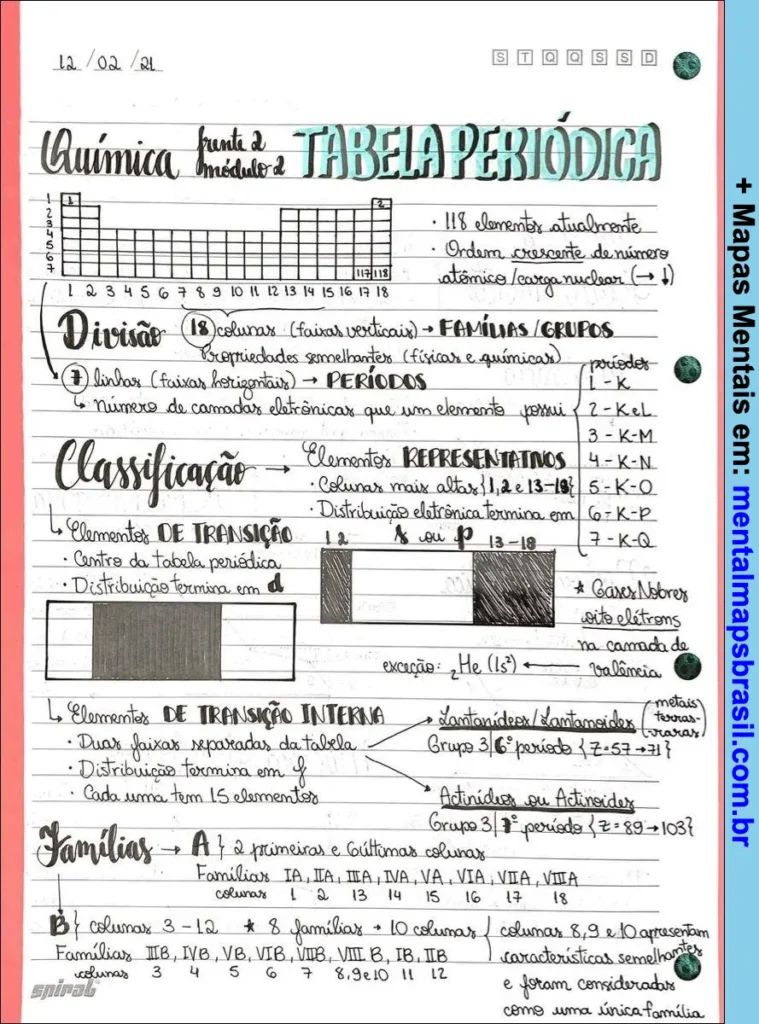 12/02/21
S T Q Q S S D
Química frente 2 módulo 2 TABELA PERIÓDICA
1 1 2
2
3
4
5
6
7 117 118
1 2 3 4 5 6 7 8 9 10 11 12 13 14 15 16 17 18
· 118 elementos atualmente
· Ordem crescente de número
atômico/carga nuclear (→ ↓)
Divisão 18 colunas (faixas verticais) → FAMÍLIAS/GRUPOS
Propriedades semelhantes (físicas e químicas)
7 linhas (faixas horizontais) → PERÍODOS
↳ Número de camadas eletrônicas que um elemento possui
períodos
1 - K
2 - K e L
3 - K-M
4 - K-N
5 - K-O
6 - K-P
7 - K-Q
Classificação → Elementos REPRESENTATIVOS
· Colunas mais altas {1, 2 e 13-18}
· Distribuição eletrônica termina em
s ou p
1 2 13-18
↳ Elementos DE TRANSIÇÃO
· Centro da tabela periódica
· Distribuição termina em d
* Gases Nobres
oito elétrons
na camada de
valência
exceção: ₂He (1s²) ←
↳ Elementos DE TRANSIÇÃO INTERNA
· Duas faixas separadas da tabela
· Distribuição termina em f
· Cada uma tem 15 elementos
Lantanídeos/Lantanoides (metais terras-raras)
Grupo 3| 6º período {Z=57→71}
Actinídios ou Actinoides
Grupo 3| 7º período {Z=89→103}
Famílias → A } 2 primeiras e 6 últimas colunas
Famílias IA, IIA, IIIA, IVA, VA, VIA, VIIA, VIIIA
colunas 1 2 13 14 15 16 17 18
B } colunas 3-12 * 8 famílias → 10 colunas
Famílias IIIB, IVB, VB, VIB, VIIB, VIII B, IB, IIB
colunas 3 4 5 6 7 8,9 e 10 11 12
colunas 8, 9 e 10 apresentam
características semelhantes
e foram consideradas
como uma única família
spiral
+ Mapas Mentais em: mentalmapsbrasil.com.br